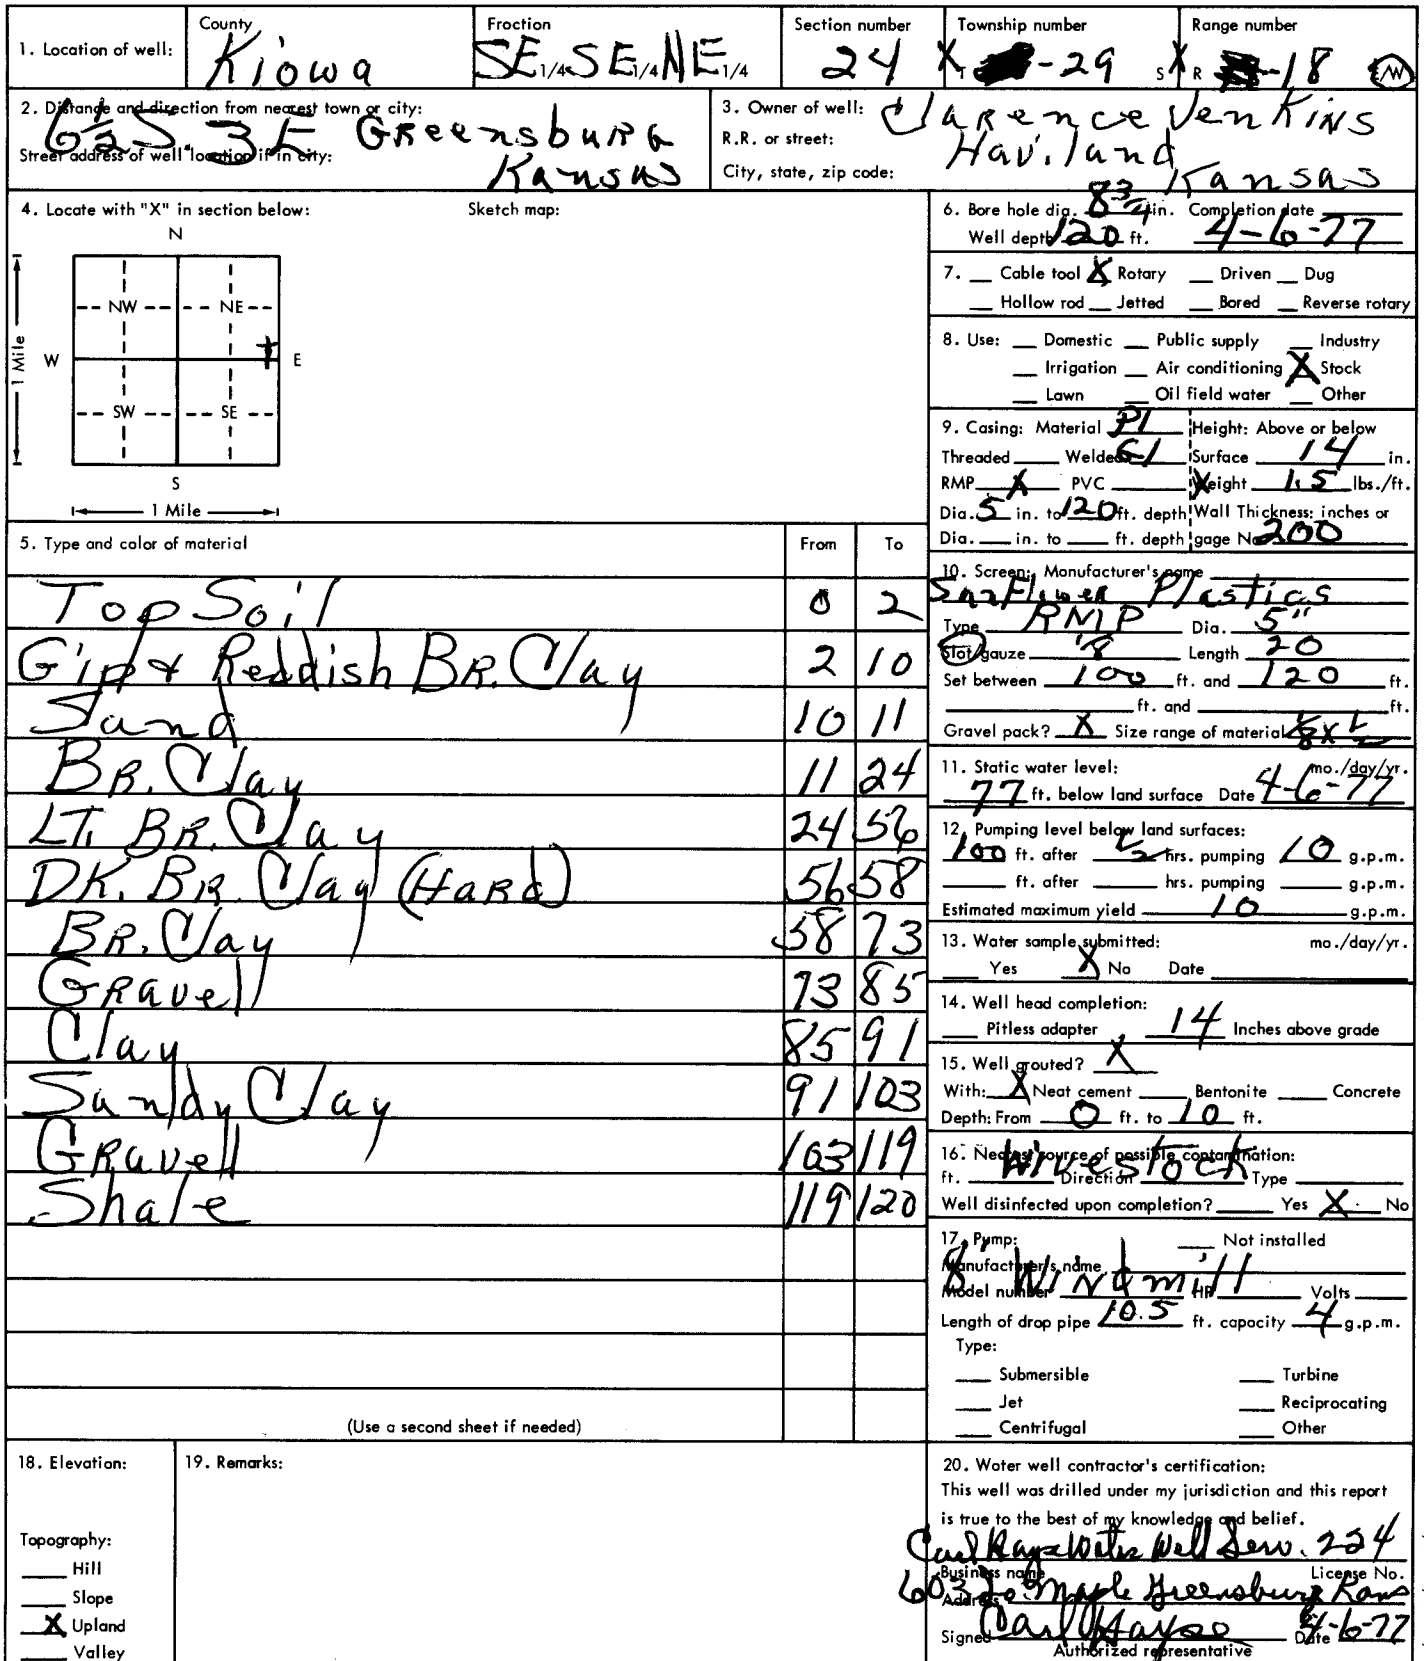 1. Location of well: County Kiowa Froction SE 1/4 SE 1/4 NE 1/4 Section number 24 Township number T -29 S Range number R -18 E/W
2. Distance and direction from nearest town or city: 6½ S. 3E Greensburg
Street address of well location if in city: Kansas
3. Owner of well: Clarence Jenkins
R.R. or street: Haviland
City, state, zip code: Kansas
4. Locate with "X" in section below: Sketch map:
N
NW NE
W E
SW SE
S
1 Mile
1 Mile
5. Type and color of material From To
Top Soil 0 2
Gip & Reddish BR. Clay 2 10
Sand 10 11
BR. Clay 11 24
LT. BR. Clay 24 56
DK. BR. Clay (HARd) 56 58
BR. Clay 58 73
GRavell 73 85
Clay 85 91
Sandy Clay 91 103
GRavell 103 119
Shale 119 120
(Use a second sheet if needed)
6. Bore hole dia. 8 3/4 in. Completion date
Well depth 120 ft. 4-6-77
7. Cable tool X Rotary Driven Dug
Hollow rod Jetted Bored Reverse rotary
8. Use: Domestic Public supply Industry
Irrigation Air conditioning X Stock
Lawn Oil field water Other
9. Casing: Material Pl Height: Above or below
Threaded Welded Gl Surface 14 in.
RMP X PVC Weight 1.5 lbs./ft.
Dia. 5 in. to 120 ft. depth Wall Thickness: inches or
Dia. in. to ft. depth gage No 200
10. Screen: Manufacturer's name
SunFlower Plastics
Type RMP Dia. 5"
Slot/gauze 8 Length 20
Set between 100 ft. and 120 ft.
ft. and ft.
Gravel pack? X Size range of material 1/8 x 1/2
11. Static water level: mo./day/yr.
77 ft. below land surface Date 4-6-77
12. Pumping level below land surfaces:
100 ft. after 1/2 hrs. pumping 10 g.p.m.
ft. after hrs. pumping g.p.m.
Estimated maximum yield 10 g.p.m.
13. Water sample submitted: mo./day/yr.
Yes X No Date
14. Well head completion:
Pitless adapter 14 Inches above grade
15. Well grouted? X
With: X Neat cement Bentonite Concrete
Depth: From 0 ft. to 10 ft.
16. Nearest source of possible contamination: Livestock
ft. Direction Type
Well disinfected upon completion? Yes X No
17. Pump: Not installed
Manufacturer's name 8' Windmill
Model number HP Volts
Length of drop pipe 10.5 ft. capacity 4 g.p.m.
Type:
Submersible Turbine
Jet Reciprocating
Centrifugal Other
18. Elevation:
Topography:
Hill
Slope
X Upland
Valley
19. Remarks:
20. Water well contractor's certification:
This well was drilled under my jurisdiction and this report
is true to the best of my knowledge and belief.
Carl Hayse Water Well Serv. 224
Business name License No.
Address 603 So. Maple Greensburg Kans
Signed Carl Hayse Date 4-6-77
Authorized representative